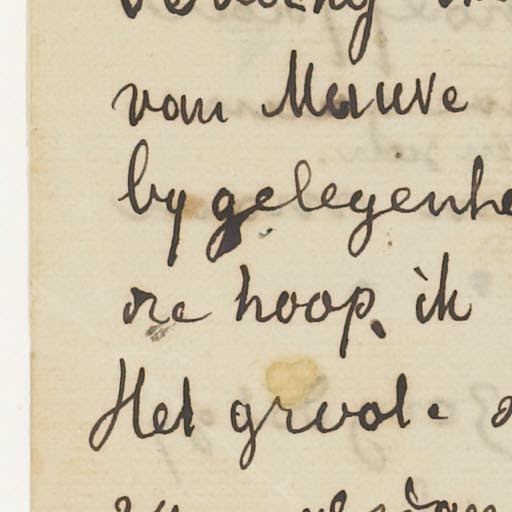 van Mauve
by gelegenhe
re hoop, ik
Het groote